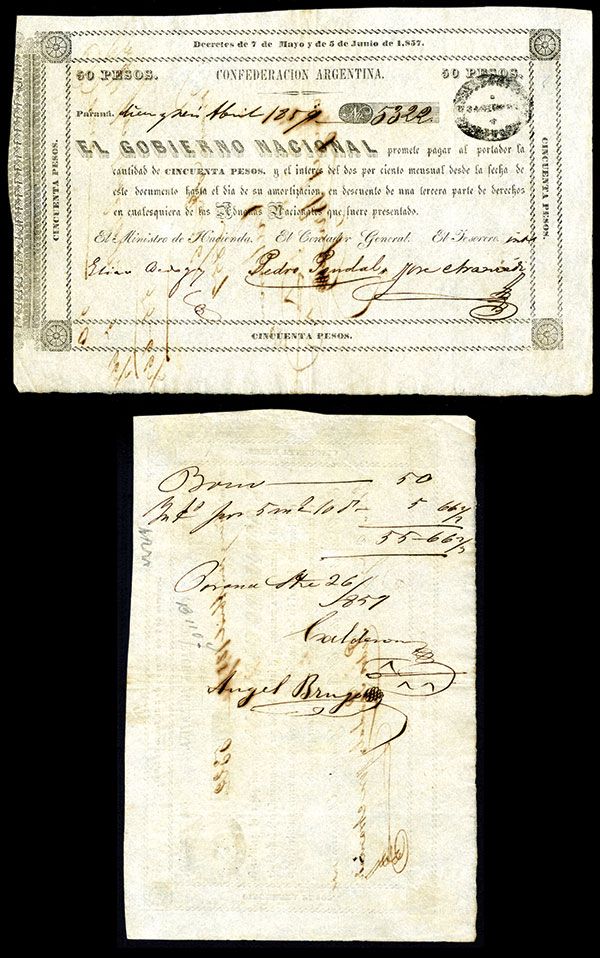 Decretos de 7 de Mayo y de 5 de Junio de 1,857.
50 PESOS. CONFEDERACION ARGENTINA. 50 PESOS.
Paraná, Abril 1859 Nº 5322
EL GOBIERNO NACIONAL promete pagar al portador la
cantidad de CINCUENTA PESOS. y el interes del dos por ciento mensual desde la fecha de
este documento hasta el dia de su amortizacion, en descuento de una tercera parte de derechos
en cualesquiera de las Aduanas Nacionales que fuere presentado.
El Ministro de Hacienda. El Contador General. El Tesorero
Pedro Pondal. Jose
CINCUENTA PESOS.
CINCUENTA PESOS.
CINCUENTA PESOS.
Bono 50
por 5 m 10 d 5 66 2/3
55-66 2/3
Parana 26/
1859
Calderon
Angel